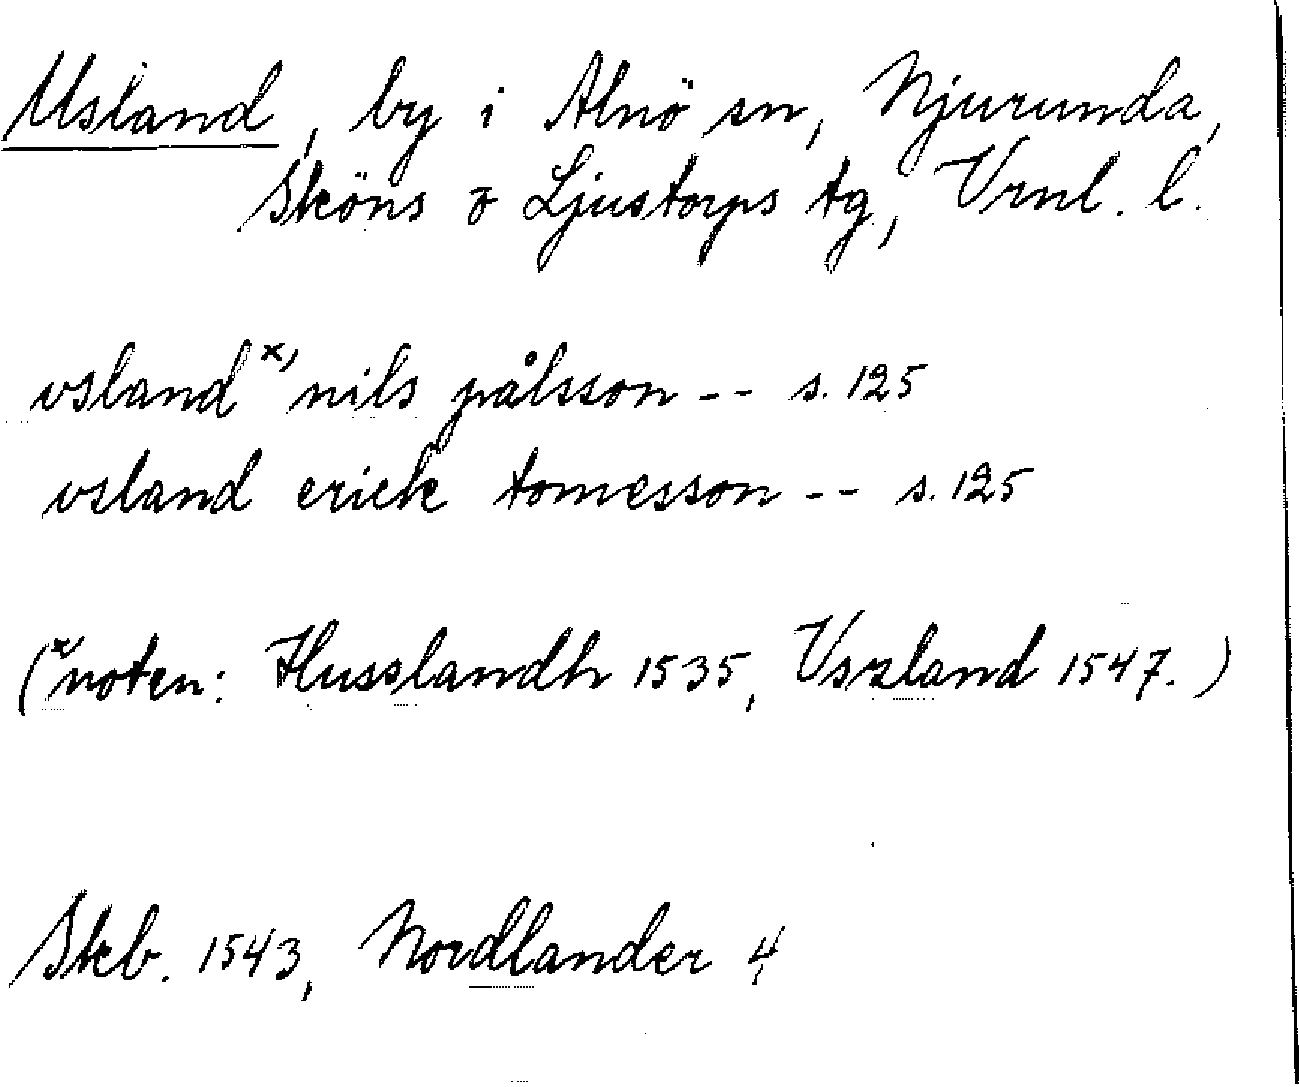 Usland, by i Alnö sn, Njurunda,
Sköns o Ljustorps tg, Vrnl. l.
vsland x) nils pålsson -- s. 125
vsland erick tomesson -- s. 125
(x) noten: Husslandh 1535, Vszland 1547.)
Skb. 1543, Nordlander 4